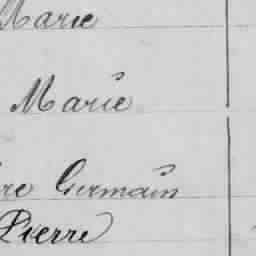 Marie
Marie
re Germain
Pierre